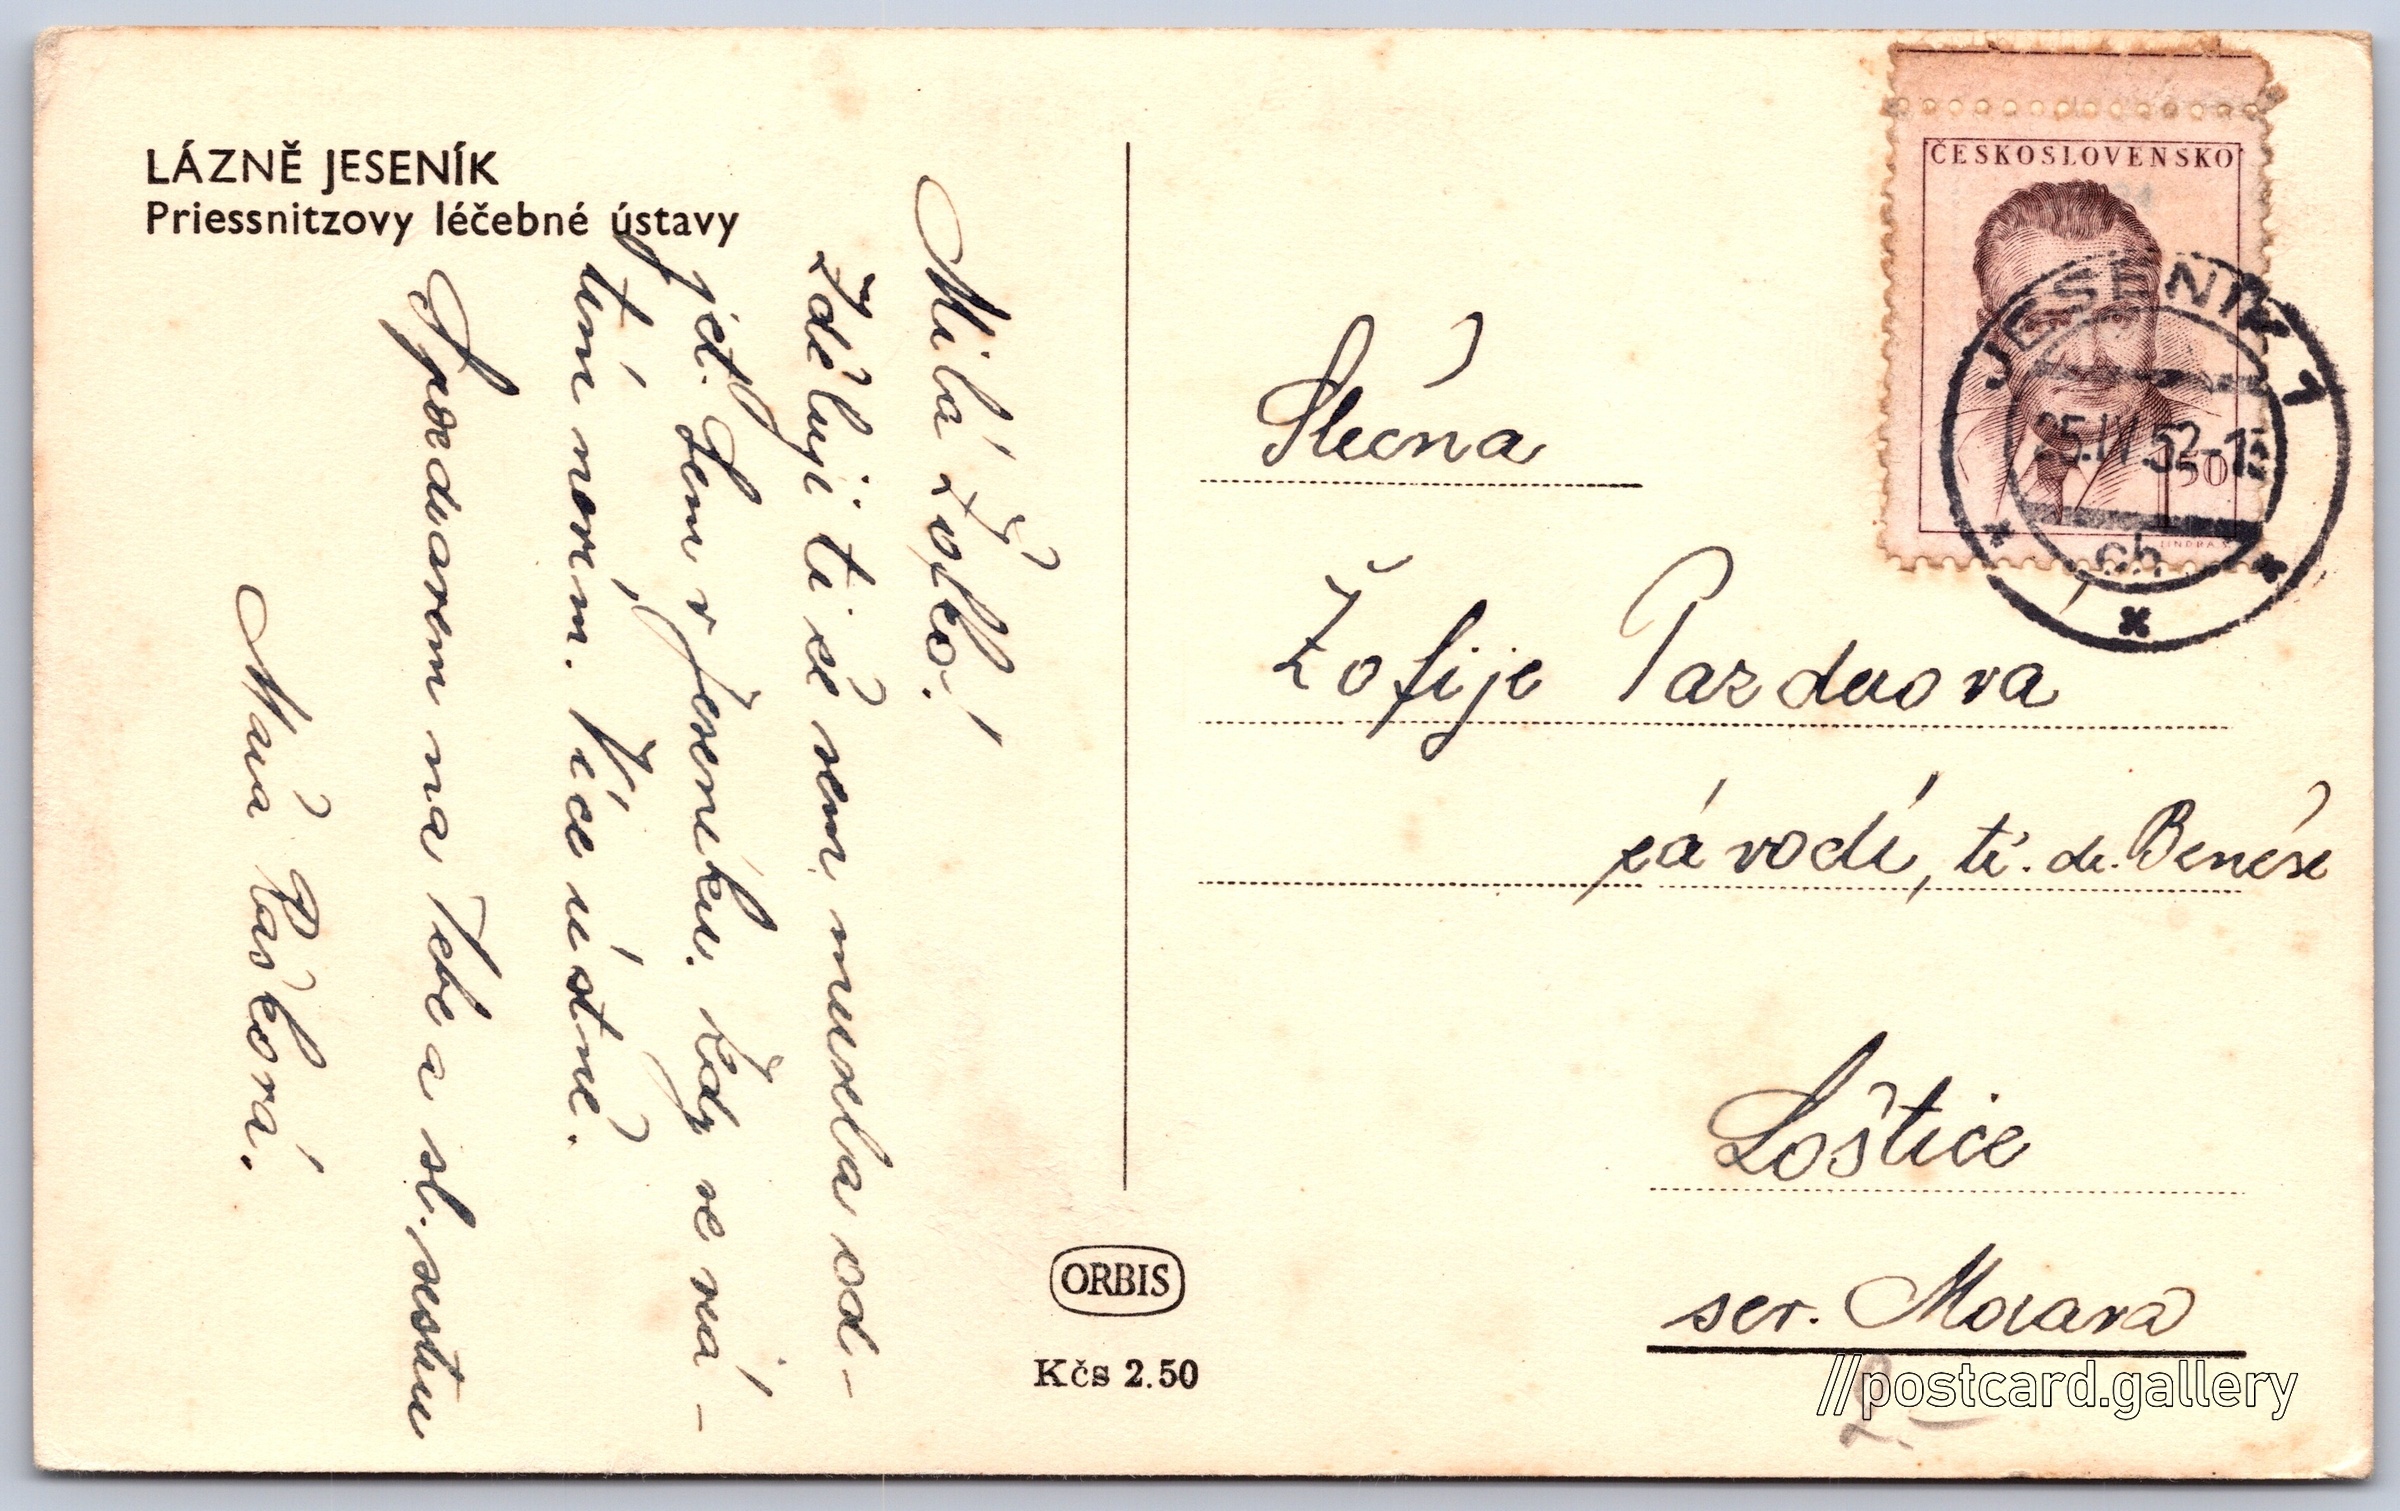 LÁZNĚ JESENÍK
Priessnitzovy léčebné ústavy
Milá Žofko!
Zděluji ti že sem musela od-
jet. Sem v Jeseníku. Kdy se vrá-
tím nevím. Více ústně.
S pozdravem na Tebe a sl. sestru
Mařa Pašková.
ORBIS
Kčs 2.50
ČESKOSLOVENSKO
1 50
JESENÍK 1
25.IV.52-15
ch
Slečna
Žofije Pazderova
závodí, tř. dr. Beneše
Loštice
sev. Morava
//postcard.gallery